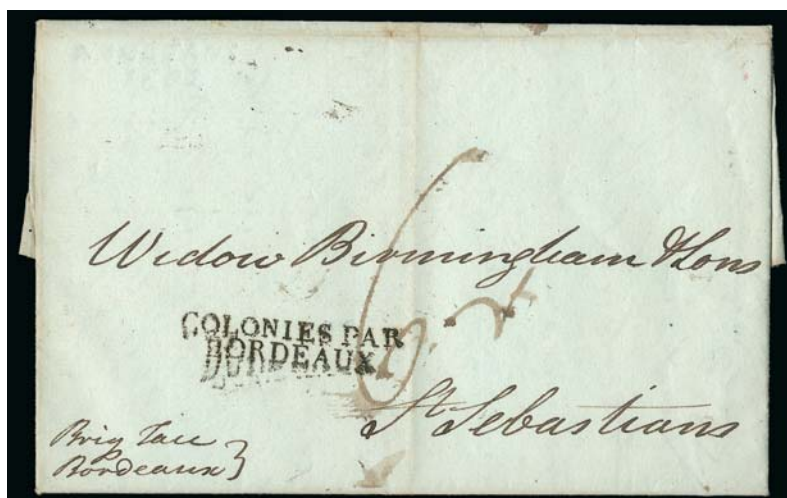 Widow Birmingham & Sons
COLONIES PAR
BORDEAUX
St Sebastians
Brig
Bordeaux }